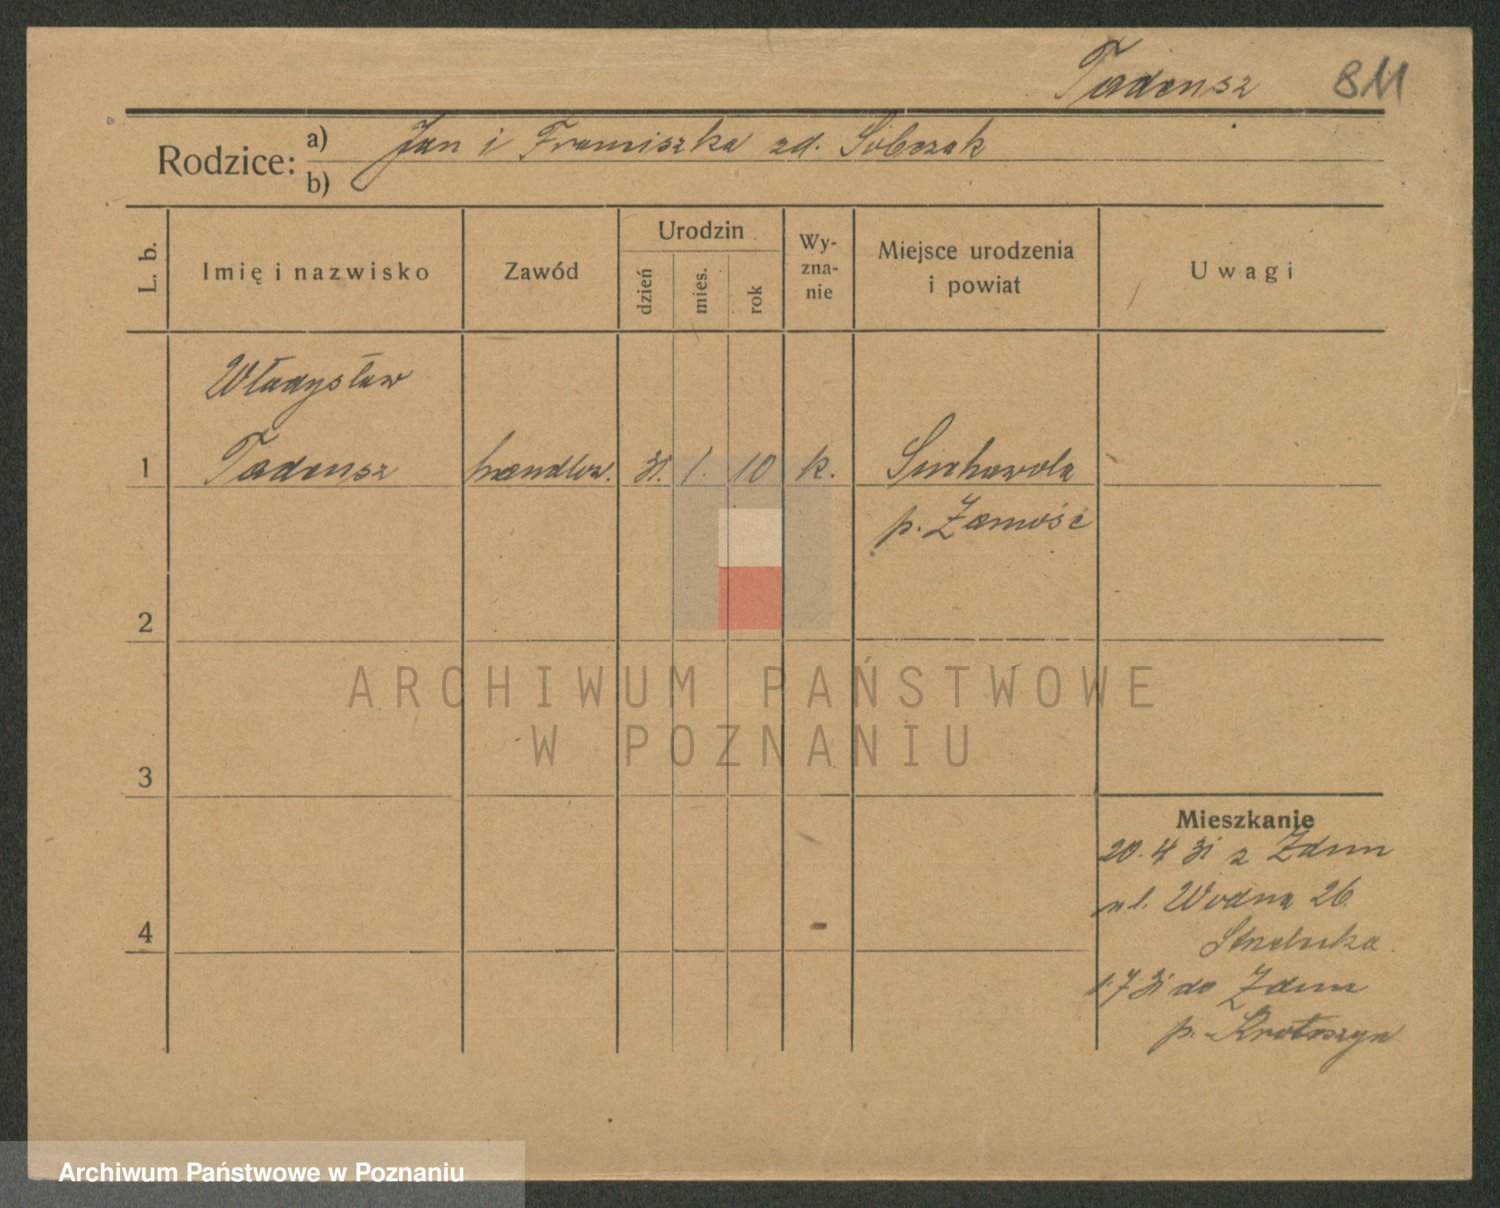 Tadeusz 811
Rodzice: a) Jan i Franciszka zd. Sobczak
b)
L. b.
Imię i nazwisko
Zawód
Urodzin
dzień
mies.
rok
Wy-
zna-
nie
Miejsce urodzenia
i powiat
Uwagi
Władysław
1 Tadeusz handlow. 31. 1. 10 k. Suchowola
p. Zamość
2
3
4
Mieszkanie
20. 4 31 z Zdun
ul. Wodna 26
1.7 31 do Zdun
p. Krotoszyn
ARCHIWUM PAŃSTWOWE
W POZNANIU
Archiwum Państwowe w Poznaniu